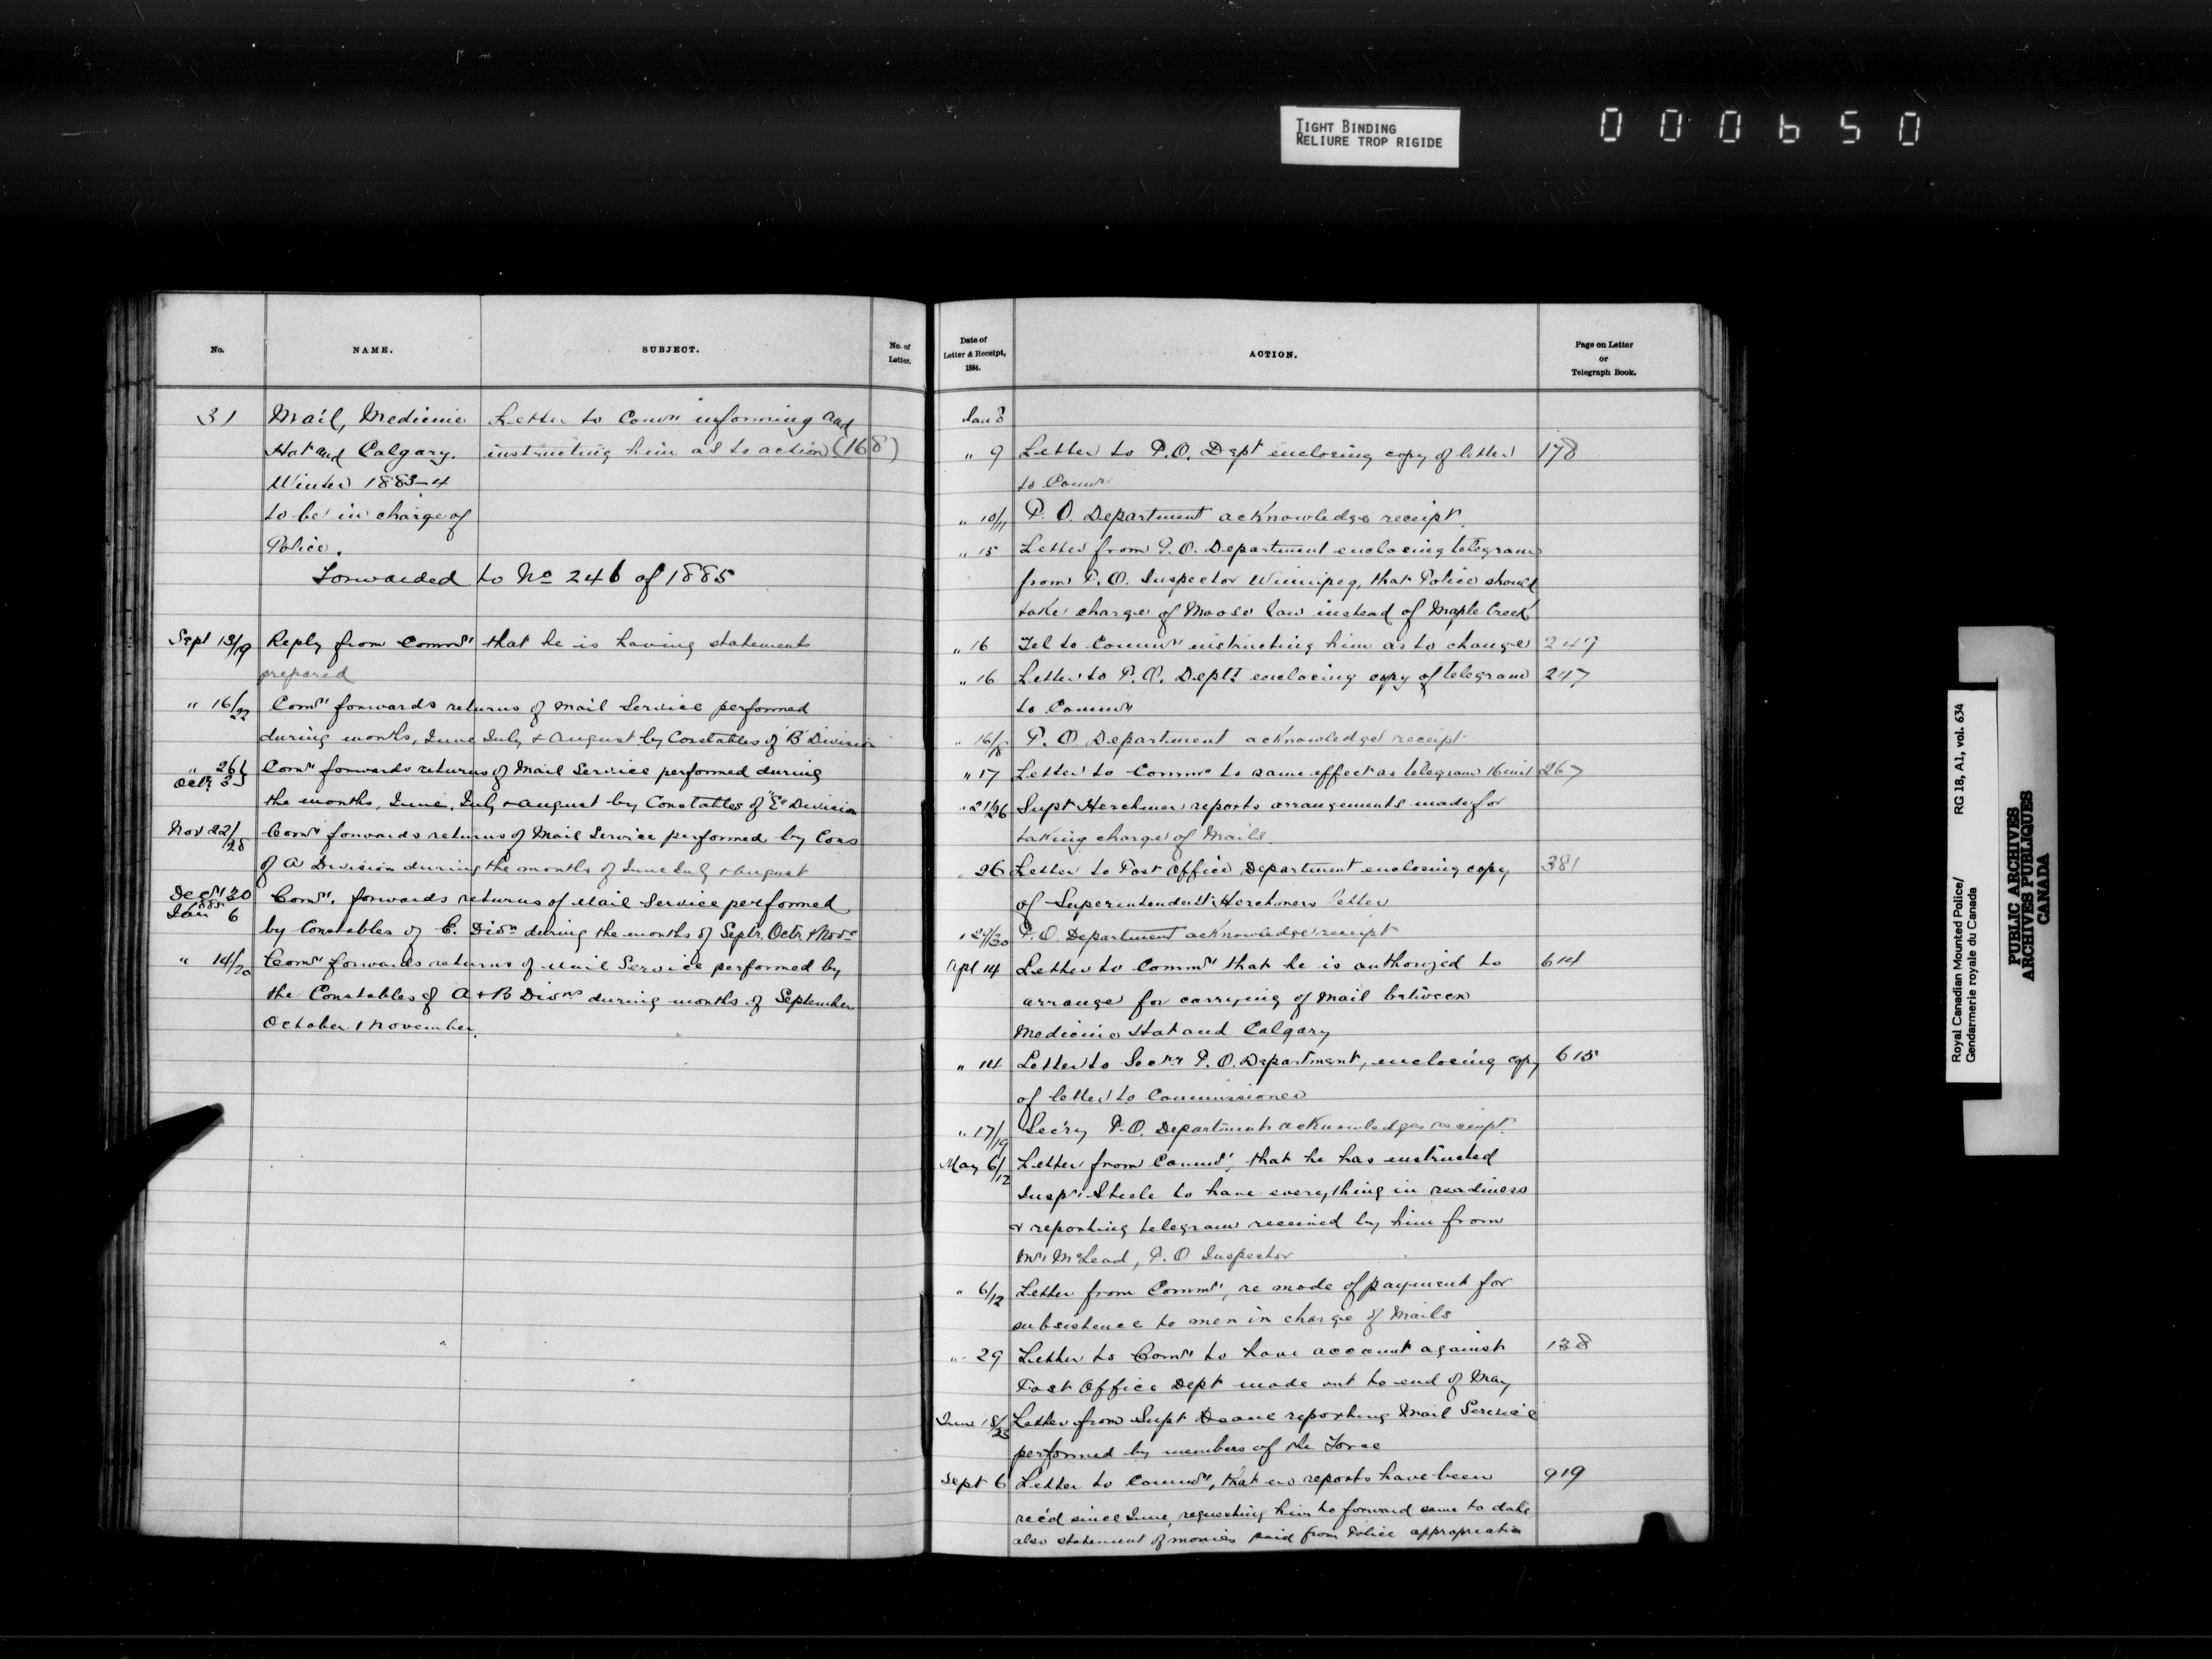 TIGHT BINDING
RELIURE TROP RIGIDE
000650
No.
NAME.
SUBJECT.
No. of
Letter.
31
Mail, Medicine
Letter to Comr informing and
Hat and Calgary.
instructing him as to action (168)
Winter 1883-4
to be in charge of
Police.
Forwarded to No 246 of 1885
Sept 13/19 Reply from Commr that he is having statements
prepared
" 16/22 Comr forwards returns of Mail Service performed
during months, June July & August by Constables of "B" Division
" 26 Octr 3 Comr forwards returns of Mail Service performed during
the months, June, July & August by Constables of "E" Division
Nov 22/28 Comr forwards returns of Mail Service performed by Cons
of A Division during the months of June July & August
Decr 30 1885 Jan 6 Comr. forwards returns of Mail Service performed
by Constables of E. Divn during the months of Septr. Octr & Nov
" 14/20 Comr forwards returns of Mail Service performed by
the Constables of A & B Divns during months of September
October & November.
Date of
Letter & Receipt,
1884.
ACTION.
Page on Letter
or
Telegraph Book.
Jan 8
" 9 Letter to P.O. Dept enclosing copy of letter 178
to Commr
" 10/11 P. O. Department acknowledge receipt.
" 15 Letter from P.O. Department enclosing telegram
from P.O. Inspector Winnipeg, that Police should
take charge of Moose Jaw instead of Maple Creek
" 16 Tel to Commr instructing him as to change 249
" 16 Letter to P.O. Dept enclosing copy of telegram 247
to Commr
" 16/18 P. O. Department acknowledge receipt
" 17 Letter to Commr to same effect as telegram 16 inst 267
" 21/26 Supt Herchmer reports arrangements made for
taking charge of Mails.
" 26 Letter to Post Office Department enclosing copy 381
of Superintendent Herchmers letter
" 29/30 P.O. Department acknowledge receipt
Apl 14 Letter to Commr that he is authorized to 614
arrange for carrying of Mail between
Medicine Hat and Calgary
" 14 Letter to Secry P.O. Department, enclosing copy 615
of letter to Commissioner
" 17/19 Secry P.O. Department acknowledges receipt.
May 6/12 Letter from Commr, that he has instructed
Inspr Steele to have everything in readiness
& reporting telegram received by him from
Mr McLeod, P.O Inspector
" 6/12 Letter from Commr, re mode of payment for
subsistence to men in charge of Mails
" 29 Letter to Comr to have account against 138
Post Office Dept made out to end of May
June 18/23 Letter from Supt Deane reporting Mail Service
performed by members of the Force
Sept 6 Letter to Commr, that no reports have been 919
rec'd since June, requesting him to forward same to date
also statement of monies paid from Police appropriation
Royal Canadian Mounted Police/ RG 18, A1, vol. 634
Gendarmerie royale du Canada
PUBLIC ARCHIVES
ARCHIVES PUBLIQUES
CANADA